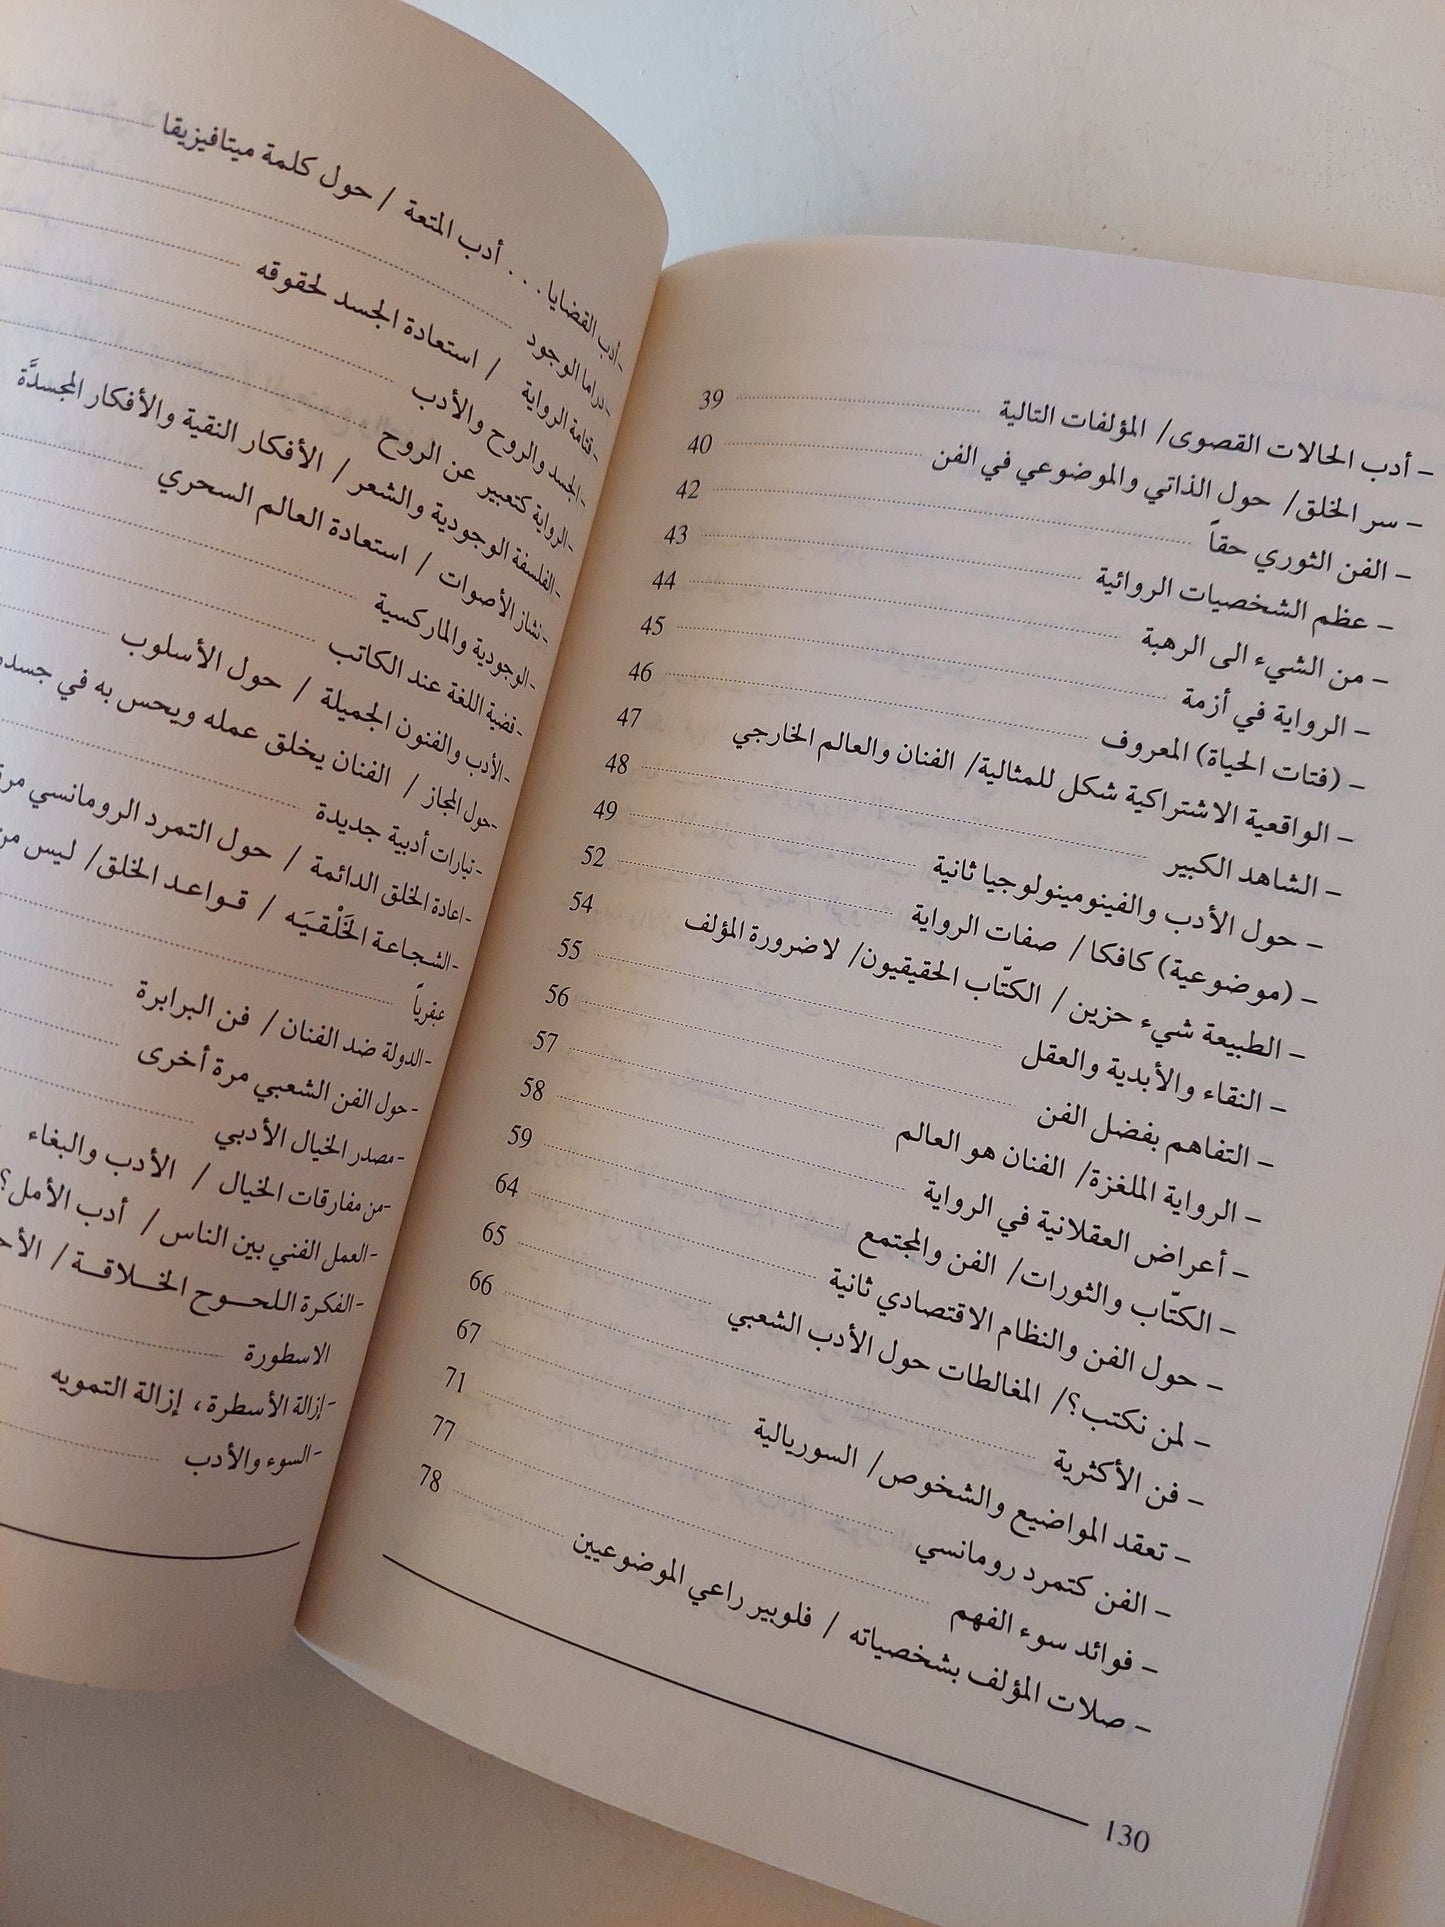 - أدب الحالات القصوى/ المؤلفات التالية 39
- سر الخلق/ حول الذاتي والموضوعي في الفن 40
- الفن الثوري حقاً 42
- عظم الشخصيات الروائية 43
- من الشيء الى الرهبة 44
- الرواية في أزمة 45
- (فتات الحياة) المعروف 46
- الواقعية الاشتراكية شكل للمثالية/ الفنان والعالم الخارجي 47
- الشاهد الكبير 48
- حول الأدب والفينومينولوجيا ثانية 49
- (موضوعية) كافكا/ صفات الرواية 52
- الطبيعة شيء حزين/ الكتّاب الحقيقيون/ لا ضرورة المؤلف 54
- النقاء والأبدية والعقل 55
- التفاهم بفضل الفن 56
- الرواية الملغزة/ الفنان هو العالم 57
- أعراض العقلانية في الرواية 58
- الكتّاب والثورات/ الفن والمجتمع 59
- حول الفن والنظام الاقتصادي ثانية 64
- لمن نكتب؟/ المغالطات حول الأدب الشعبي 65
- فن الأكثرية 66
- تعقد المواضيع والشخوص/ السوريالية 67
- الفن كتمرد رومانسي 71
- فوائد سوء الفهم 77
- صلات المؤلف بشخصياته / فلوبير راعي الموضوعيين 78
130
- أدب القضايا... أدب المتعة / حول كلمة ميتافيزيقا
- دراما الوجود
- قتامة الرواية / استعادة الجسد لحقوقه
- الجسد والروح والأدب
- الرواية كتعبير عن الروح
- الفلسفة الوجودية والشعر / الأفكار النقية والأفكار المجسدَّة
- نشاز الأصوات / استعادة العالم السحري
- الوجودية والماركسية
- قضية اللغة عند الكاتب
- الأدب والفنون الجميلة / حول الأسلوب
- حول المجاز / الفنان يخلق عمله ويحس به في
- تيارات أدبية جديدة
- اعادة الخلق الدائمة / حول التمرد الرومانسي
- الشجاعة الخَلْقيَه / قواعد الخلق/ ليس
عبقرياً
- الدولة ضد الفنان / فن البرابرة
- حول الفن الشعبي مرة أخرى
- مصدر الخيال الأدبي
- من مفارقات الخيال / الأدب والبغاء
- العمل الفني بين الناس / أدب الأمل؟
- الفكرة اللحوح الخلاقة /
الاسطورة
- إزالة الأسطرة، إزالة التمويه
- السوء والأدب